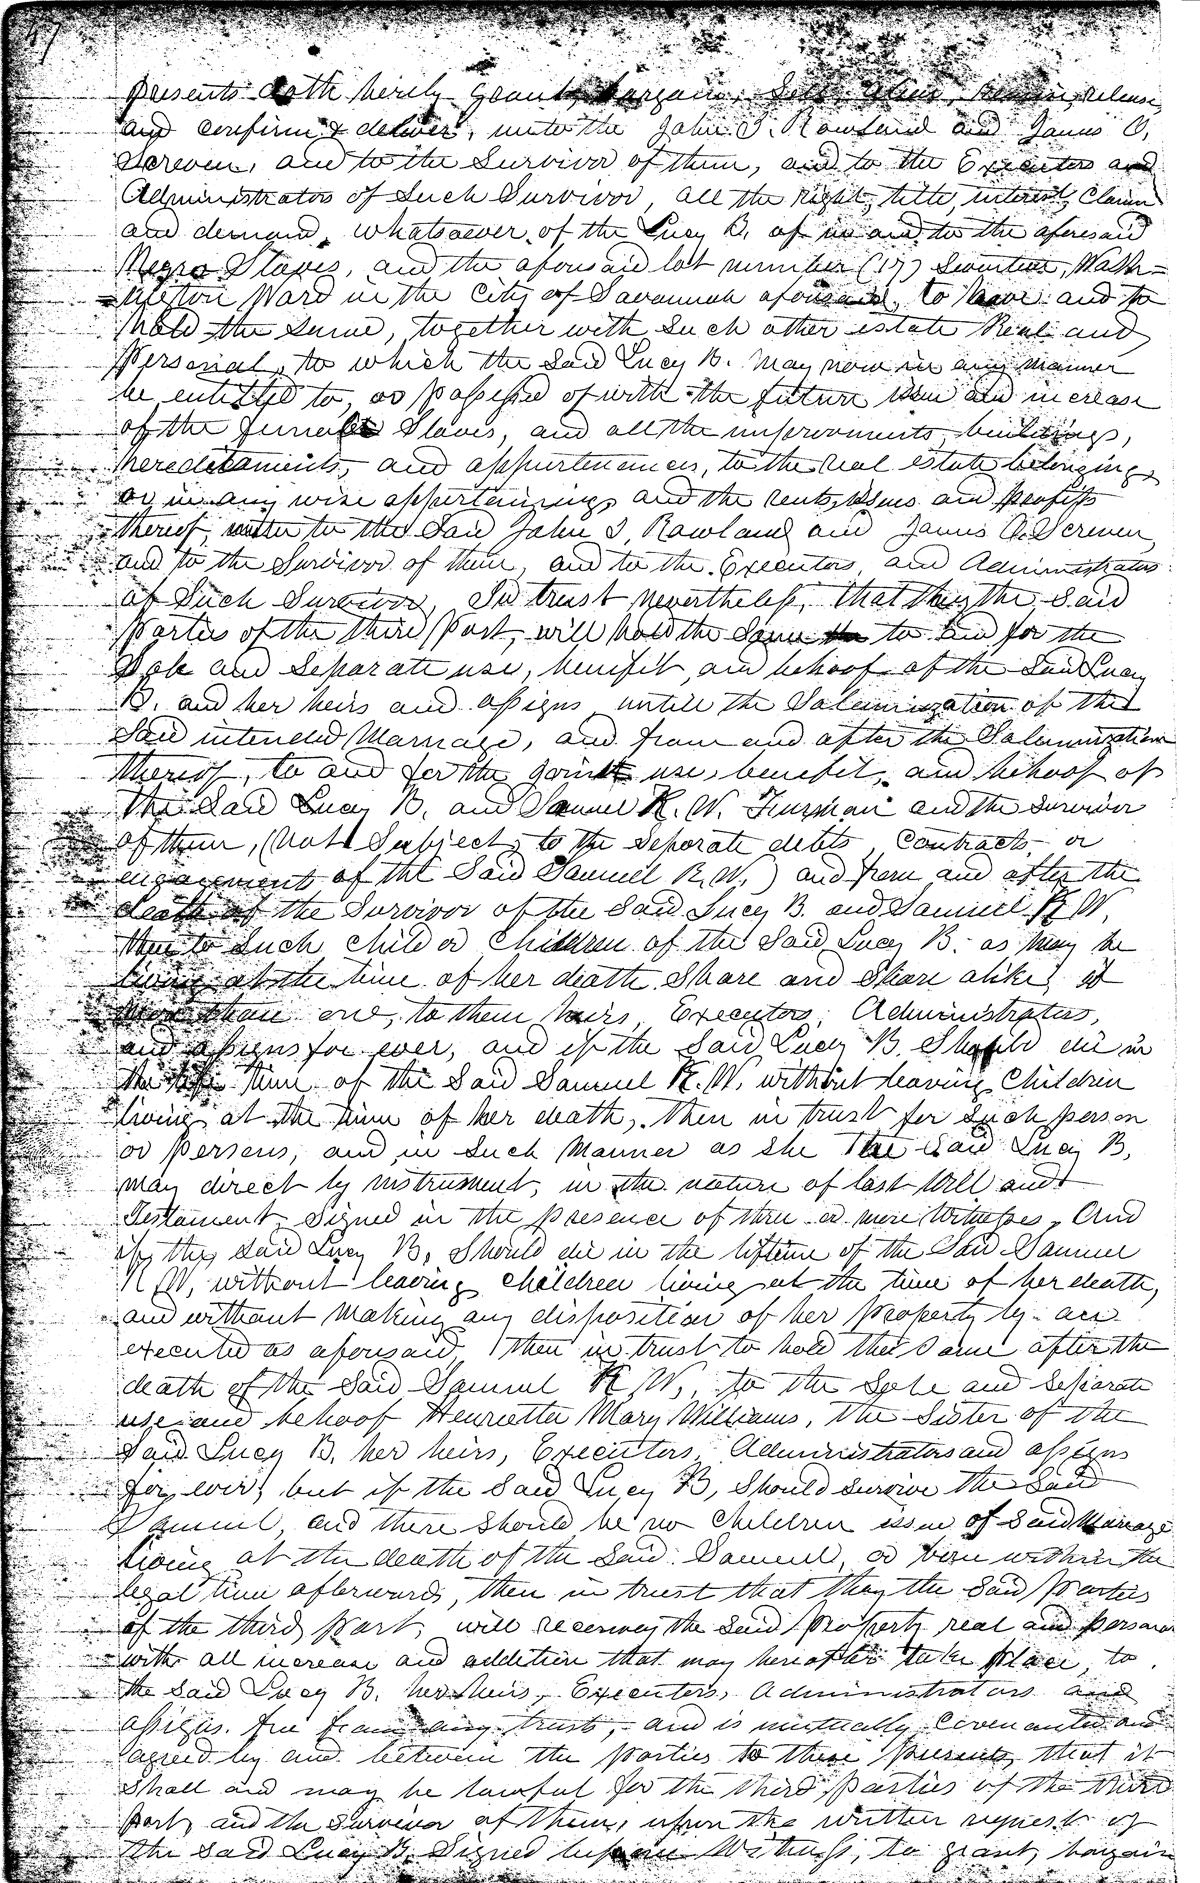 47
presents doth hereby grant, bargain, Sell, alien, remise, release,
and confirm & deliver, unto the John S. Rowland and James O,
Screven, and to the Survivor of them, and to the Executors and
Administrators of Such Survivor, all the right, title, interest, Claim
and demand, whatsoever, of the Lucy B, of in and to the aforesaid
Negro Slaves, and the afousaid lot number (17) Seventeen, Wash=
=ington Ward in the City of Savannah afousaid, to have and to
hold the same, together with Such other estate Real and
Personal, to which the Said Lucy B. may now in any manner
be entitled to, or possessed of with the future issue and increase
of the female Slaves, and all the improvements, buildings,
hereditaments, and appurtenances, to the real estate belonging,
or in any wise appertaining and the rents, issues and profits
thereof, unto to the Said John S, Rowland and James O. Screven,
and to the Survivor of them, and to the Executors, and Administrators
of Such Survivor, In trust nevertheless, that they the Said
Parties of the third Part, will hold the Same to and for the
Sole and Separate use, benefit, and behoof of the Said Lucy
B. and her heirs and assigns untill the Solemnization of the
Said intended Marriage, and from and after the Solemnization
thereof, to and for the joint use, benefit, and behoof of
the Said Lucy B. and Samuel R. W. Furman and the survivor
of them, (not Subject, to the Separate debts, Contracts, or
engagements of the Said Samuel R, W.) and from and after the
death of the Survivor of the Said Lucy B. and Samuel R W,
then to Such Child or Children of the Said Lucy B. as may be
living at the time of her death Share and Share alike, if
more than one, to them heirs, Executors, Administrators,
and assigns for ever, and if the Said Lucy B Should die in
the life time of the Said Samuel R. W. without leaving Children
living at the time of her death, then in trust for such person
or persons, and in Such Manner as she The Said Lucy B,
may direct by instrument, in the nature of last Will and
Testament Signed in the presence of three or more Witnesses, And
if the Said Lucy B, Should die in the lifetime of the Said Samuel
R W, without leaving Children living at the time of her death,
and without making any disposition of her Property by
executed as afousaid, then in trust to hold the Same after the
death of the Said Samuel R W, to the Sole and Separate
use and behoof Henrietta Mary Williams, the Sister of the
Said Lucy B, her heirs, Executors, Administrators and assigns
for ever, but if the Said Lucy B, Should survive the Said
Samuel, and there should be no Children issue of Said Marriage
living at the death of the Said Samuel, or born within the
legal time afterwards, then in trust that they the Said Parties
of the third, Part, will reconvey the Said Property real and personal
with all increase and addition that may hereafter take place, to
the Said Lucy B. her heirs, Executors, Administrators and
assigns. free from any trust, and is mutually Covenanted and
agreed by and between the parties to these Presents, that it
Shall and may be lawful for the third, parties of the third
part, and the survivor of them, upon the written request of
the Said Lucy B. Signed before Witness, to grant, bargain